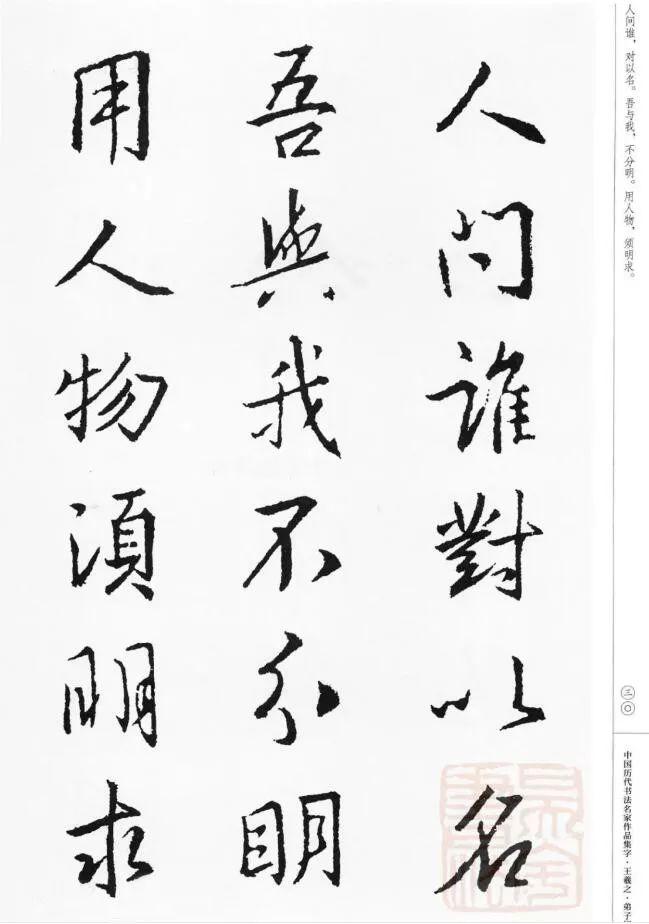 人问谁，对以名。吾与我，不分明。用人物，须明求。
人問誰對以名
吾與我不分明
用人物須明求
三〇
中国历代书法名家作品集字·王羲之·弟子